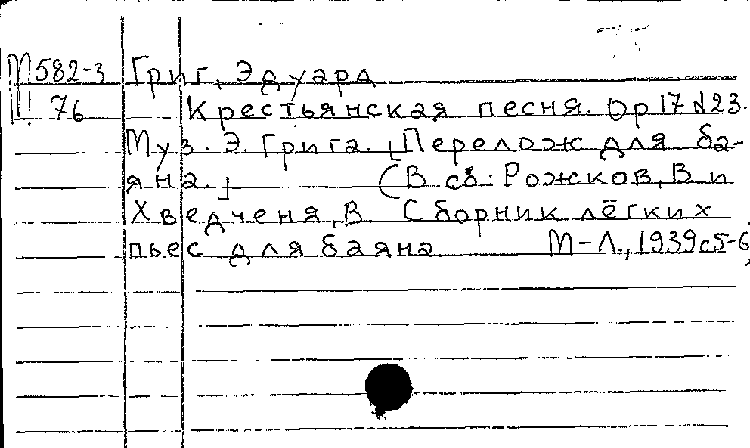 М582-3 Григ, Эдуард
76 Крестьянская песня. Op 17 №23.
Муз. Э. Грига. [Перелож для ба-
яна.] (В сб: Рожков, В и
Хведченя, В. Сборник лёгких
пьес для баяна М-Л., 1939 с5-6